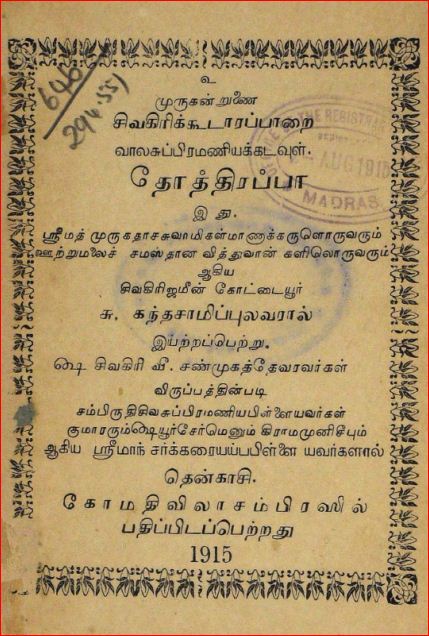 உ
முருகன்றுணை
சிவகிரிக்கூடாரப்பாறை
வாலசுப்பிரமணியக்கடவுள்.
தோத்திரப்பா
இது.
ஸ்ரீமத் முருகதாசசுவாமிகள்மாணாக்கருளொருவரும்
ஊற்றுமலைச் சமஸ்தான வித்துவான் களிலொருவரும்
ஆகிய
சிவகிரிஜமீன் கோட்டையூர்
சு. கந்தசாமிப்புலவரால்
இயற்றப்பெற்று.
௸ சிவகிரி வீ. சண்முகத்தேவரவர்கள்
விருப்பத்தின்படி
சம்பிருதிசிவசுப்பிரமணியபிள்ளையவர்கள்
குமாரரும்௸யூர்சேர்மெனும் கிராமமுனிசீபும்
ஆகிய ஸ்ரீமாந் சர்க்கரையப்பபிள்ளை யவர்களால்
தென்காசி.
கோமதிவிலாசம்பிரஸில்
பதிப்பிடப்பெற்றது
1915
646
294.551
REGISTRAR
AUG 1915
MADRAS